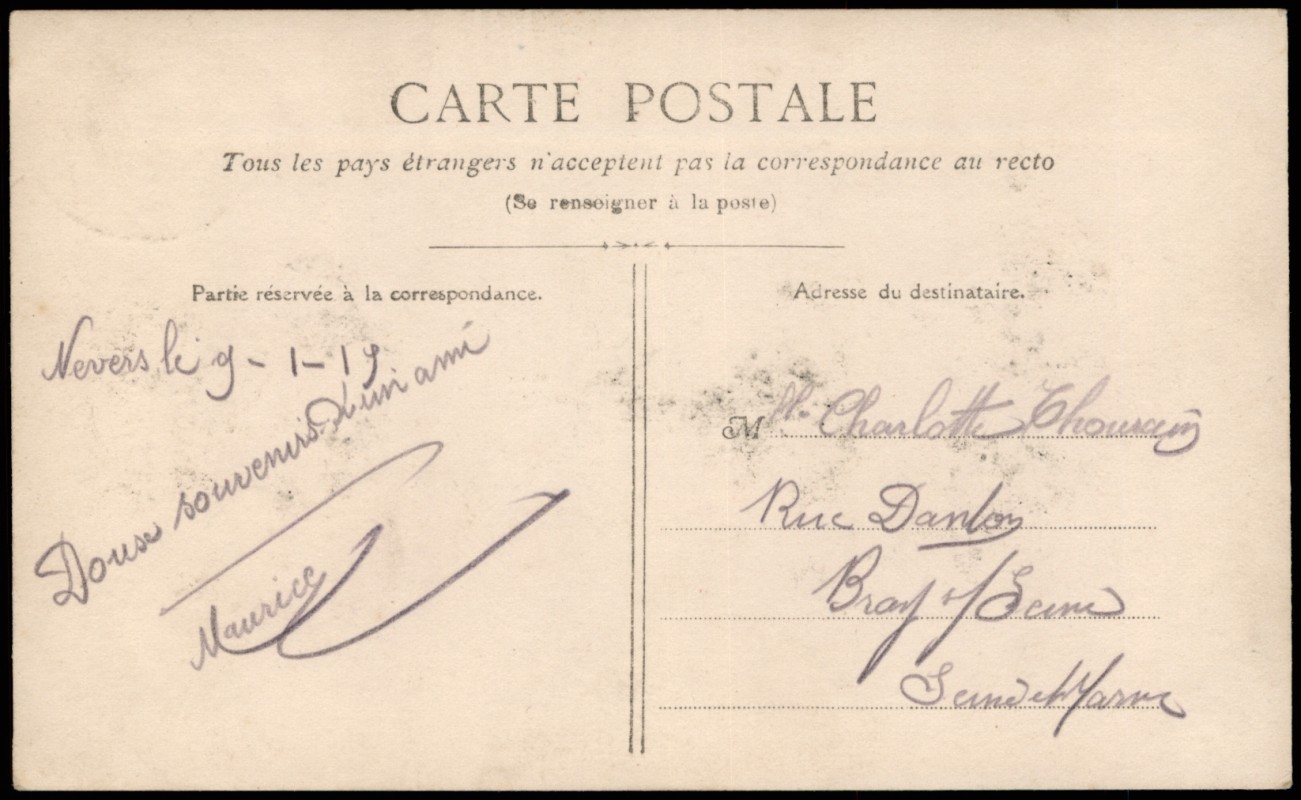 CARTE POSTALE
Tous les pays étrangers n'acceptent pas la correspondance au recto
(Se renseigner à la poste)
Partie réservée à la correspondance.
Nevers le 9-1-19
Doux souvenirs d'un ami
Maurice
Adresse du destinataire.
Mlle Charlotte
Rue Danton
Bray s/Seine
Seine et Marne